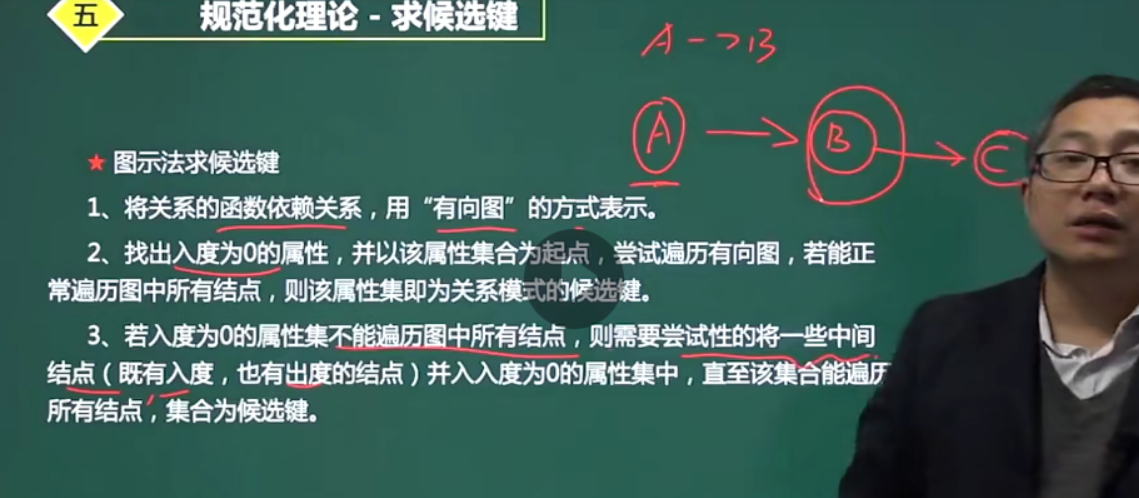 五
规范化理论 - 求候选键
A->B
A
B
C
★ 图示法求候选键
1、将关系的函数依赖关系，用“有向图”的方式表示。
2、找出入度为0的属性，并以该属性集合为起点，尝试遍历有向图，若能正
常遍历图中所有结点，则该属性集即为关系模式的候选键。
3、若入度为0的属性集不能遍历图中所有结点，则需要尝试性的将一些中间
结点（既有入度，也有出度的结点）并入入度为0的属性集中，直至该集合能遍历
所有结点，集合为候选键。